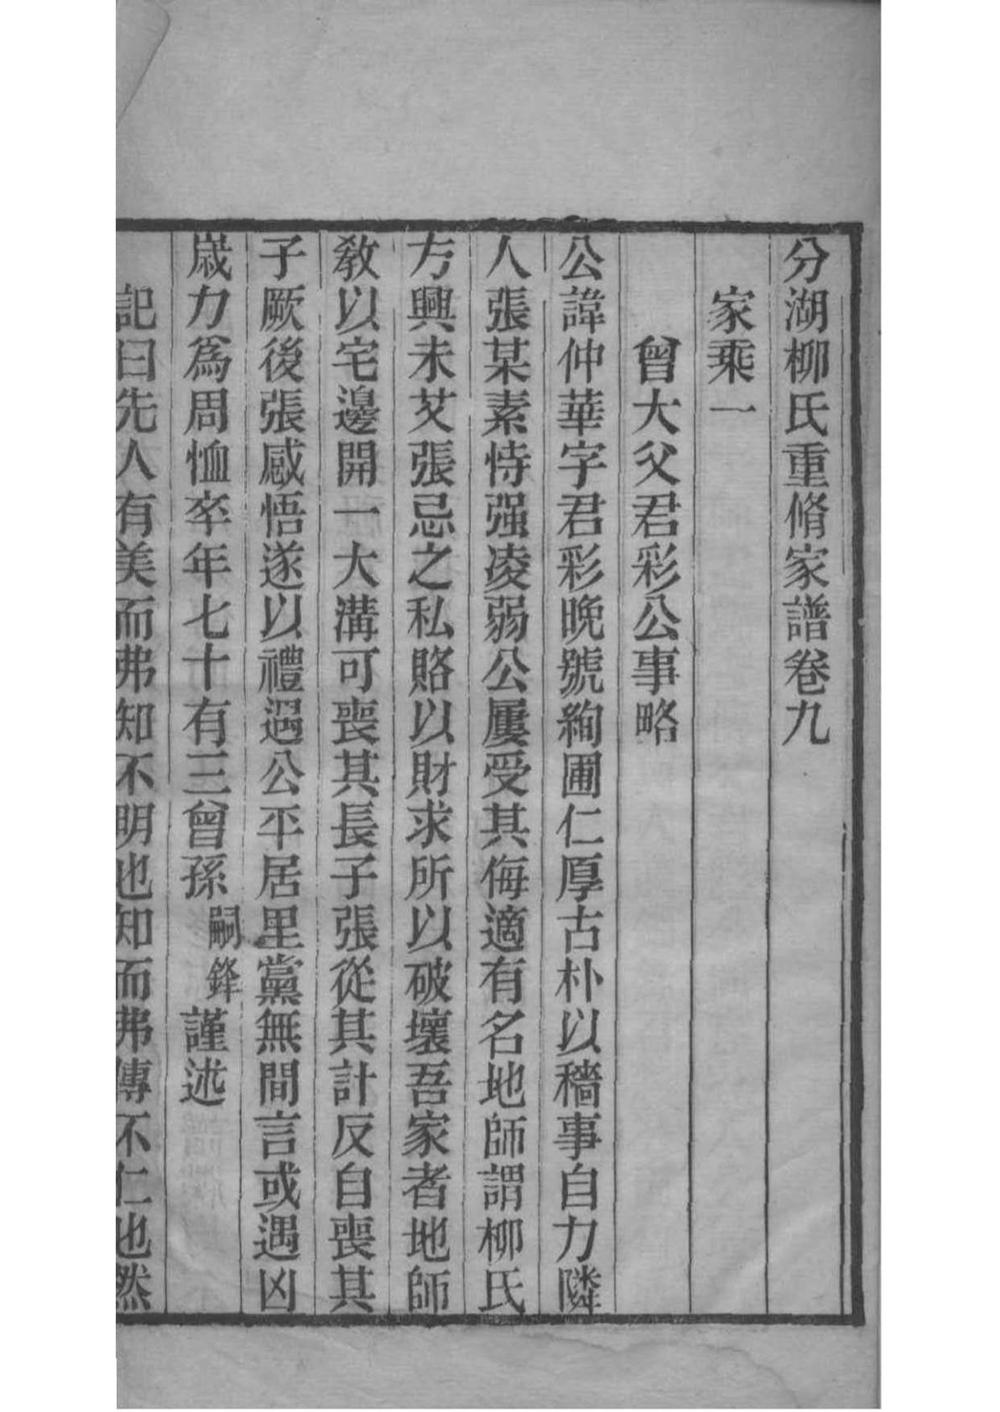 分湖柳氏重脩家譜卷九
家乘一
曾大父君彩公事略
公諱仲華字君彩晚號絢圃仁厚古朴以穡事自力隣
人張某素恃强凌弱公屢受其侮適有名地師謂柳氏
方興未艾張忌之私賂以財求所以破壞吾家者地師
敎以宅邊開一大溝可喪其長子張從其計反自喪其
子厥後張感悟遂以禮遇公平居里黨無間言或遇凶
歲力爲周恤卒年七十有三曾孫嗣鋒謹述
記曰先人有美而弗知不明也知而弗傳不仁也然